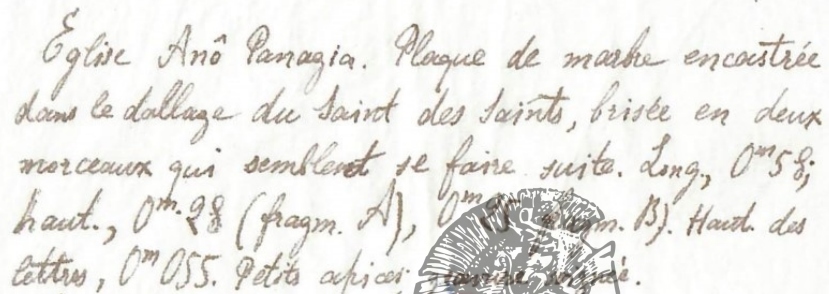 Église Anô Panagia. Plaque de marbre encastrée
dans le dallage du Saint des Saints, brisée en deux
morceaux qui semblent se faire suite. Long., 0m58;
haut., 0m.28 (fragm. A), 0m (fragm. B). Haut. des
lettres, 0m055. Petits apices; gravure soignée.